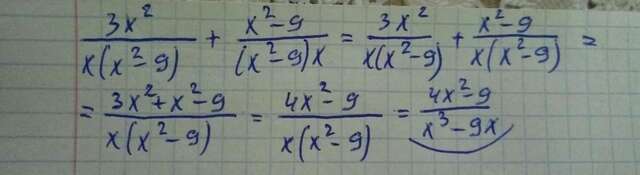 3x²/x(x²-9) + x²-9/(x²-9)x = 3x²/x(x²-9) + x²-9/x(x²-9) =
= 3x²+x²-9/x(x²-9) = 4x²-9/x(x²-9) = 4x²-9/x³-9x